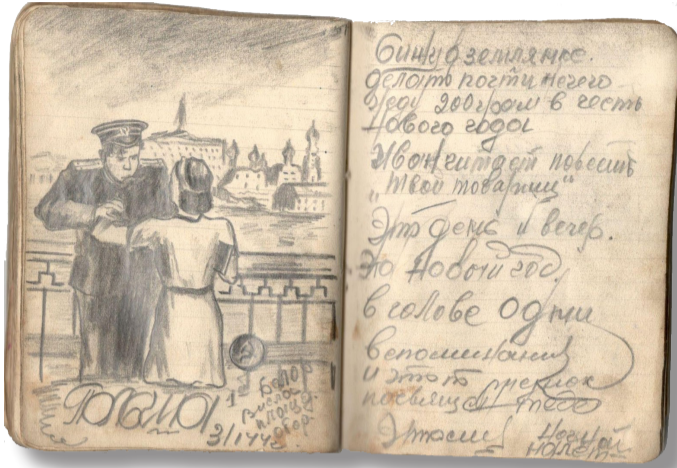 Белор
Висло-
плацд-
3/I
Сижу в землянке.
делать почти нечего
жду 200 грам в честь
Нового года
Иван читает повесть
"Твой товарищ"
Это день и вечер.
Новый год
в голове одни
вспоминания
и этот рисунок
посвящаю тебе
Ночной
налет-